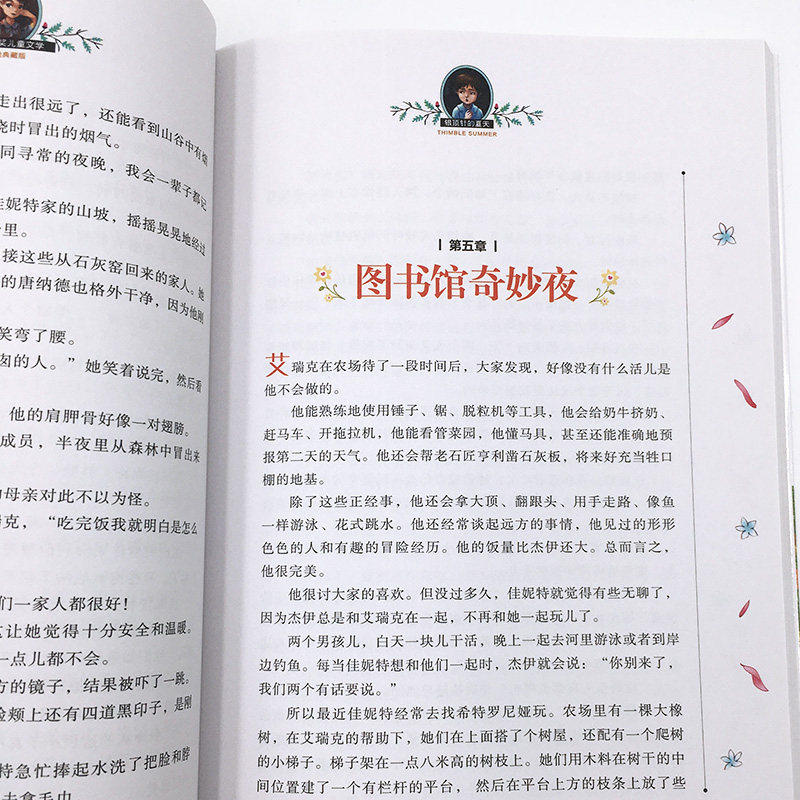 奖儿童文学
典藏版
走出很远了，还能看到山谷中有烟
烧时冒出的烟气。
同寻常的夜晚，我会一辈子都记
佳妮特家的山坡，摇摇晃晃地经过
里。
接这些从石灰窑回来的家人。她
的唐纳德也格外干净，因为他刚
笑弯了腰。
卤的人。”她笑着说完，然后看
他的肩胛骨好像一对翅膀。
成员，半夜里从森林中冒出来
母亲对此不以为怪。
克，“吃完饭我就明白是怎么
们一家人都很好！
这让她觉得十分安全和温暖。
一点儿都不会。
方的镜子，结果被吓了一跳。
脸颊上还有四道黑印子，是刚
特急忙捧起水洗了把脸和脖
去拿毛巾。
银顶针的夏天
THIMBLE SUMMER
第五章
图书馆奇妙夜
艾瑞克在农场待了一段时间后，大家发现，好像没有什么活儿是
他不会做的。
他能熟练地使用锤子、锯、脱粒机等工具，他会给奶牛挤奶、
赶马车、开拖拉机，他能看管菜园，他懂马具，甚至还能准确地预
报第二天的天气。他还会帮老石匠亨利凿石灰板，将来好充当牲口
棚的地基。
除了这些正经事，他还会拿大顶、翻跟头、用手走路、像鱼
一样游泳、花式跳水。他还经常谈起远方的事情，他见过的形形
色色的人和有趣的冒险经历。他的饭量比杰伊还大。总而言之，
他很完美。
他很讨大家的喜欢。但没过多久，佳妮特就觉得有些无聊了，
因为杰伊总是和艾瑞克在一起，不再和她一起玩儿了。
两个男孩儿，白天一块儿干活，晚上一起去河里游泳或者到岸
边钓鱼。每当佳妮特想和他们一起时，杰伊就会说：“你别来了，
我们两个有话要说。”
所以最近佳妮特经常去找希特罗尼娅玩。农场里有一棵大橡
树，在艾瑞克的帮助下，她们在上面搭了个树屋，还配有一个爬树
的小梯子。梯子架在一点八米高的树枝上。她们用木料在树干的中
间位置建了一个有栏杆的平台，然后在平台上方的枝条上放了些